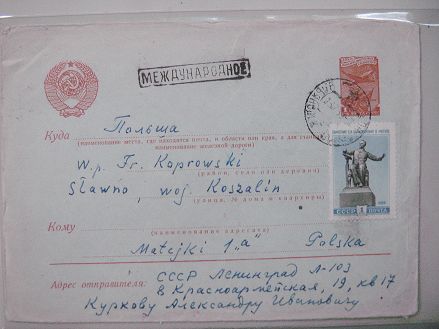 МЕЖДУНАРОДНОЕ
Куда Польша
(наименование места, где находится почта, и области или края, а для станций
наименование железной дороги)
W.p. Fr. Koprowski
(район, село или деревня)
Sławno, woj. Koszalin
(улица, № дома и квартиры)
Кому
(наименование адресата)
Matejki 1 „a" Polska
СССР 1 ПОЧТА
Адрес отправителя: СССР Ленинград Л-103
8 Красноармейская, 19, кв 17
Куркову Александру Ивановичу